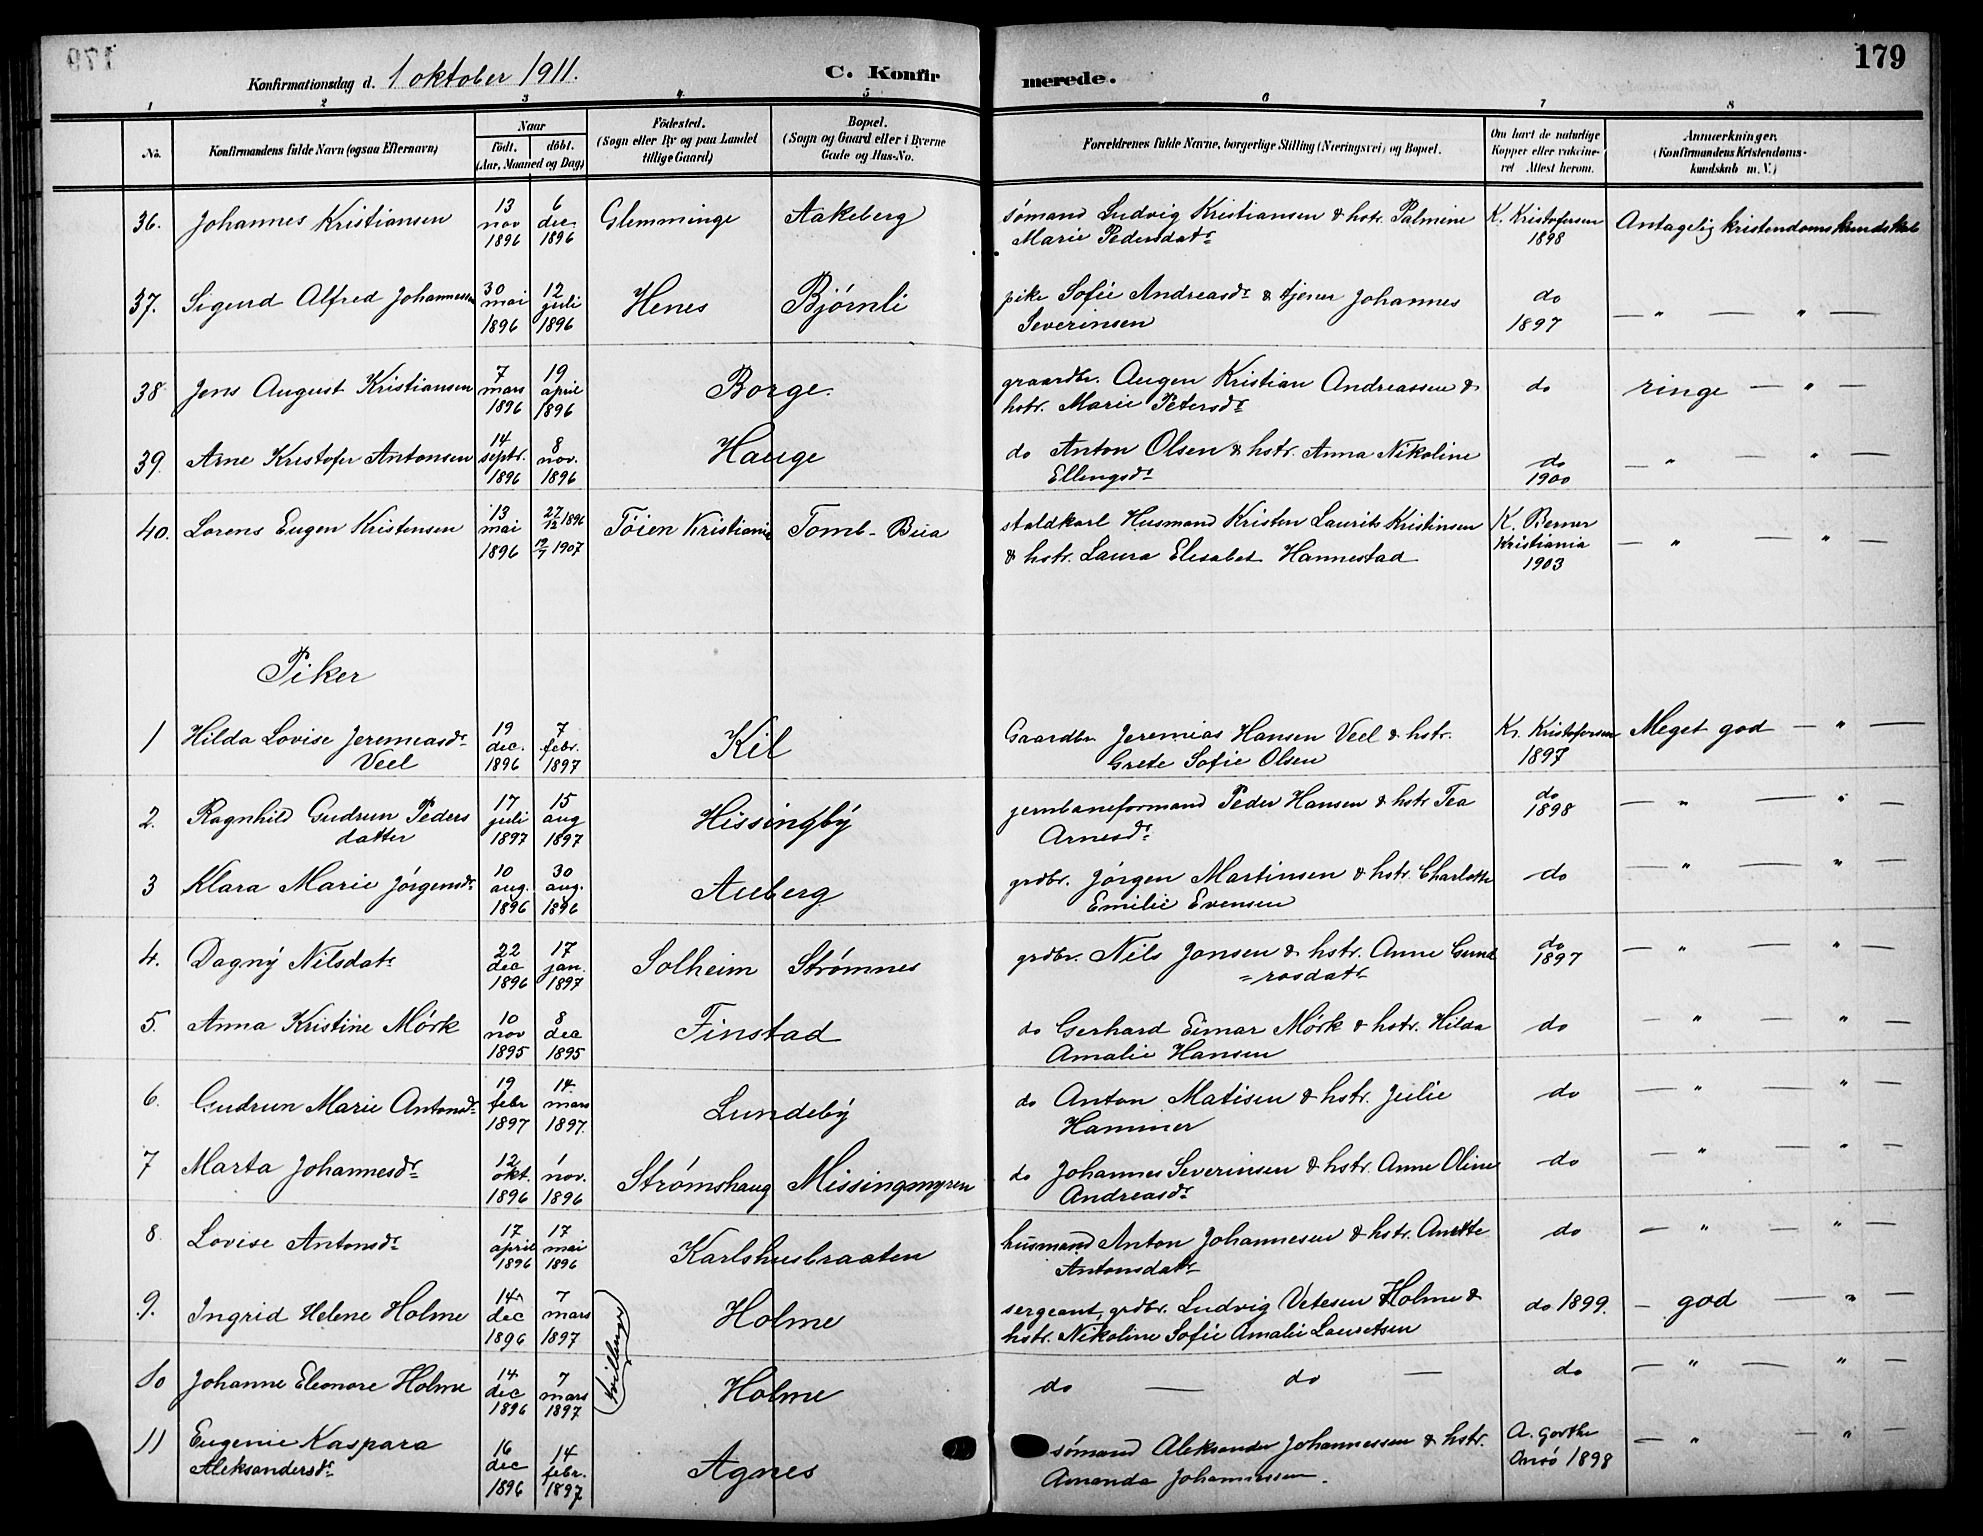 179
Konfirmationsdag d. 1 oktober 1911.
C. Konfirmerede.
1 2 3 4 5 6 7 8
No.
Konfirmandens fulde Navn (ogsaa Efternavn)
Naar
født. døbt.
(Aar, Maaned og Dag)
Fødested.
(Sogn eller By og paa Landet
tillige Gaard)
Bopæl.
(Sogn og Gaard eller i Byerne
Gade og Hus-No.
Forældrenes fulde Navne, borgerlige Stilling (Næringsvei) og Bopæl.
Om havt de naturlige
Kopper eller vakcine-
ret Attest herom.
Anmærkninger,
(Konfirmandens Kristendoms-
kundskab m. V.)
36. Johannes Kristiansen 13 nov 1896 6 dec. 1896 Glemminge Aakeberg sømand Ludvig Kristiansen & hstr. Palmine K. Kristofersen 1898 Antagelig kristendomskundskab
Marie Pedersdatr
37. Sigurd Alfred Johannessen 30 mai 1896 12 juli 1896 Henes Bjørnli pike Sofie Andreasdr & tjener Johannes do 1897 — " — " —
Severinsen
38 Jens August Kristiansen 7 mars 1896 19 april 1896 Borge. graardbr. Augen Kristian Andreassen & do ringe — " —
hstr. Marie Petersdr
39. Arne Kristofer Antonsen 14 septr. 1896 8 nov. 1896 Hauge do Anton Olsen & hstr. Anna Nikoline do 1900 — " — " —
Ellingsdr
40. Lorens Eugen Kristensen 13 mai 1896 27/12 1896 1907 Tøien Kristiania Tomb-Bua staldkarl Husmand Kristen Laurits Kristinsen K. Berner Kristiania 1903 — " — " —
& hstr. Laura Elisabet Hannestad
Piker
1 Hilda Lovise Jeremiasdr 19 dec. 1896 7 febr. 1897 Kil Gaardbr Jeremias Hansen Veel & hstr. Kr. Kristofersen 1897 Meget god — " —
Veel Grete Sofie Olsen
2. Ragnhild Gudrun Peders 17 juli 1897 15 aug 1897 Hissingby jernbaneformand Peder Hansen & hstr Tea do 1898 — " — " —
datter Arnesdr
3 Klara Marie Jørgensdr 10 aug. 1896 30 aug. 1896 Auberg grdbr. Jørgen Martinsen & hstr. Charlotte do — " — " —
Emilie Evensen
4. Dagny Nilsdatr 22 dec 1896 17 jan. 1897 Solheim Strømnes grdbr. Nils Jonsen & hstr. Anne Gund do 1897 — " — " —
= rosdatr
5. Anna Kristine Mörk 10 nov 1895 8 dec 1895 Finstad do Gerhard Eimar Mörk & hstr. Hilda do — " — " —
Amalie Hansen
6. Gudrun Marie Antonsdr 19 febr 1897 14. mars 1897. Lundeby do Anton Matisen & hstr. Julie do — " — " —
Hammer
7 Marta Johannesdr 12 okt. 1896 1 nov. 1896 Strømshaug Missingmyren do Johannes Severinsen & hstr. Anne Oline do — " — " —
Andreasdr
8 Lovise Antonsdr 17 april 1896 17 mai 1896 Karlshusbraaten husmand Anton Johannesen & hstr. Anette do — " — " —
Antonsdatr
9. Ingrid Helene Holme 14 dec 1896 7 mars 1897 Holme sergeant, grdbr. Ludvig Vetesen Holme & do 1899. — god — " —
hstr. Nikoline Sofie Amalie Lauretsen
tvillinger
10 Johanne Eleonore Holme 14 dec 1896 7 mars 1897 Holme do — do — do — " — " —
11 Eugenie Kaspara 16 dec 1896 14 febr. 1897 Agnes sømand Aleksander Johannessen & hstr. A. 1898 — " — " —
Aleksandersdr Amanda Johannessen.